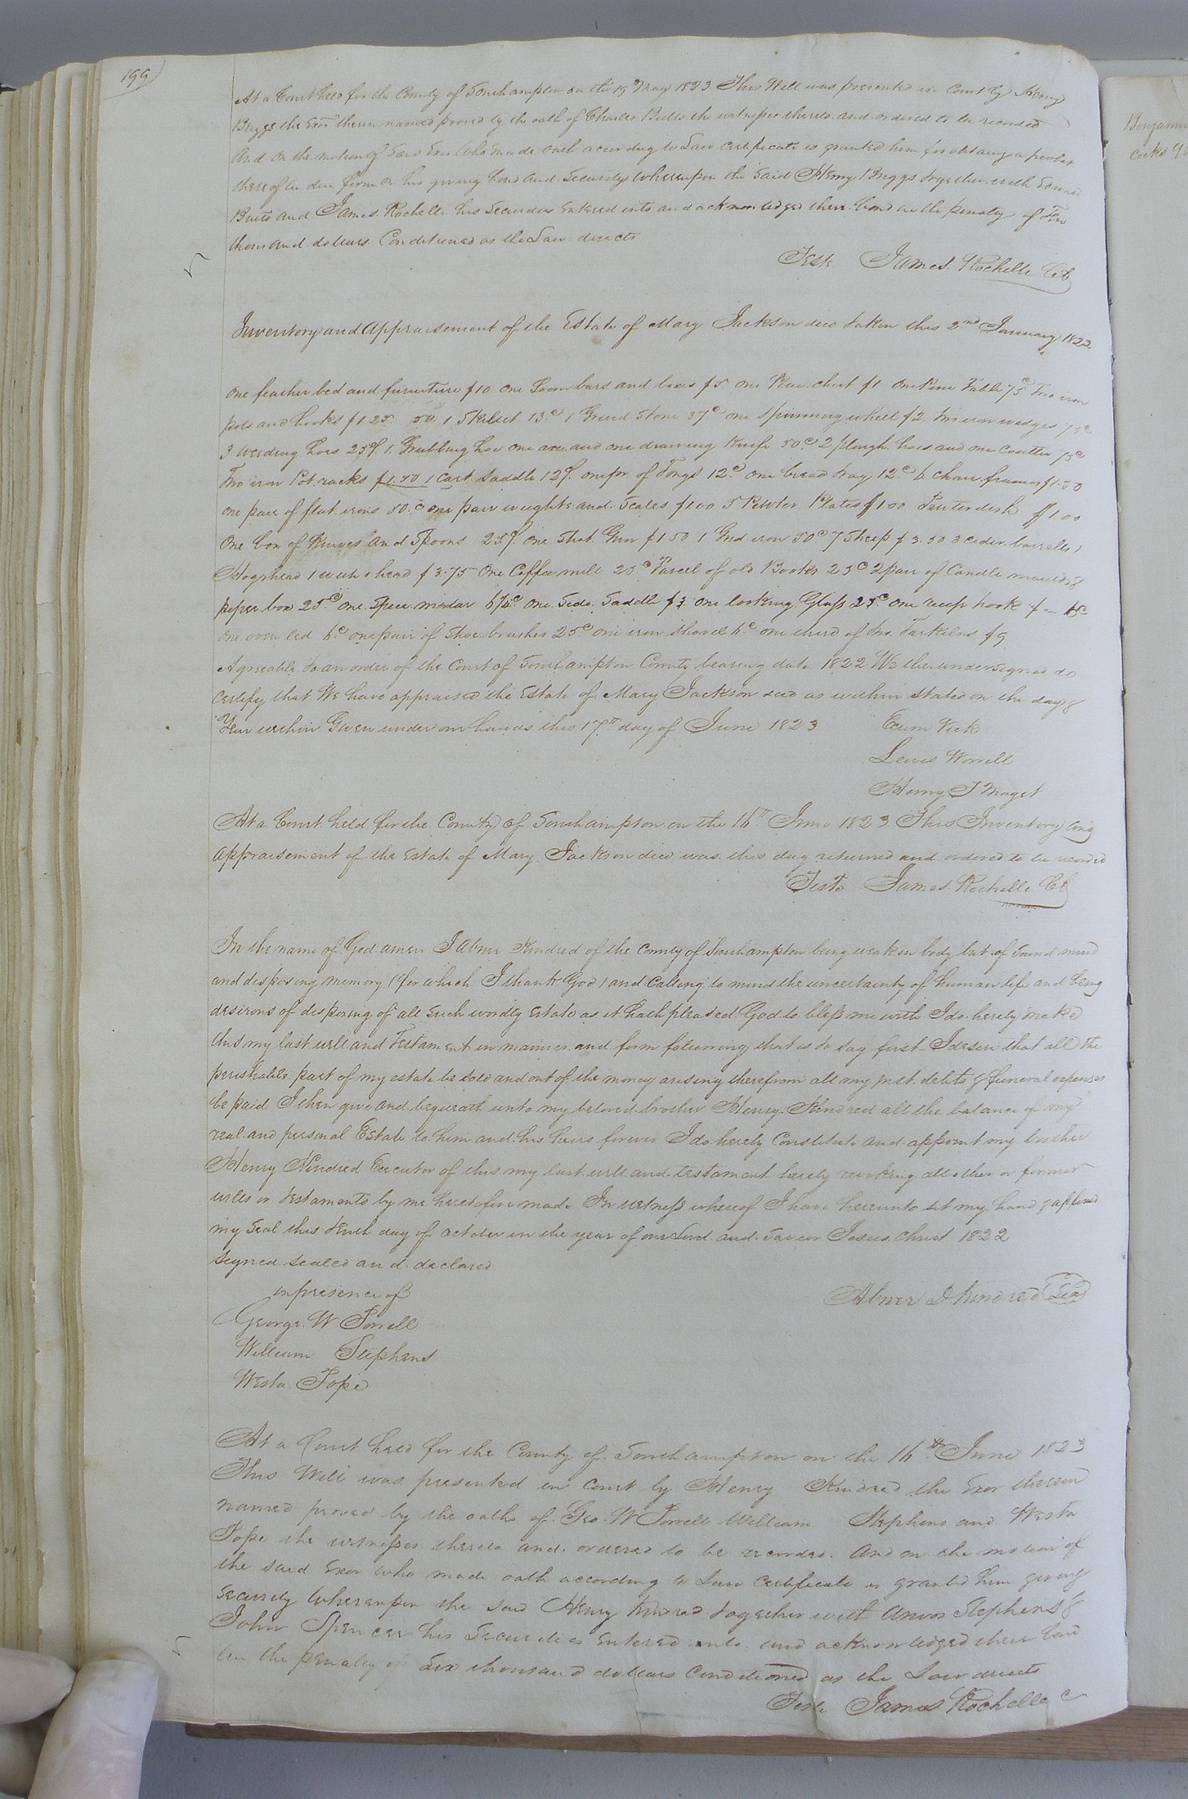 199
At a Court held for the County of Southampton on the 19th May 1823 This Will was presented in Court by Henry
Briggs the Exor therein named proved by the oath of Charles Butts the witness thereto and ordered to be recorded
And on the motion of Said Exor who made oath according to Law certificate is granted him for obtaing a probat
thereof in due form on his giving bond and Security whereupon the Said Henry Briggs together with
Butts and James Rochelle his Securities Entered into and acknowledged their bond in the penalty of Ten
thousand dollars Conditioned as the Law directs
Teste James Rochelle Ck
Inventory and Appraisement of the Estate of Mary Jackson decd taken this 2nd January 1822
One feather bed and furniture $10 One Loom bars and $5 one Pine chest $1 One Pine Table 75c Two iron
pots and hooks $1.25 50 1 Skilect 13c 1 Grind Stone 37c one Spinning wheel $2 two iron wedges 75c
3 Weeding Hoes 25c 1 Grubbing hoe one axe and one drawing Knife 50c 2 plough hoes and one Coulter 75c
Two iron Pot racks $1.50 1 Cart Saddle 12c one pr. of Tongs 12c one bread tray 12c 6 chair frames $1.50
one pair of flat irons 50c one pair weights and Scales $1.00 5 Pewter Plates $1.00 Pewter dish $1.00
One box of Knives and Spoons 25c one Shot Gun $1.50 1 Gnd iron 50c 7 Sheep $3.50 3 ceder barrells 1
Hogshead 1 with 1 head $3.75 One Coffee mill 25c Parcel of old Books 25c 2 pair of Candle moulds &
peper box 25c one Spice mortar 6¼c one Side Saddle $3 one looking Glass 25c one reep hook
one oven led 6c one pair of Shoe brushes 25c one iron Shovel 6c one third of two Tarkilns $9
Agreeable to an order of the Court of Southampton County bearing date 1822 We the undersigned do
certify that We have appraised the Estate of Mary Jackson decd as within stated on the day &
Year within Given under our hands this 17th day of June 1823 Exum Vick
Lewis Worrell
Henry J Maget
At a Court held for the County of Southampton on the 16th June 1823 This Inventory and
appraisement of the Estate of Mary Jackson decd was this day returned and ordered to be recorded
Teste James Rochelle Ck
In the name of God amen I Abner Kindred of the County of Southampton being weak in body but of Sound mind
and disposing memory (for which I thank God) and Calling to mind the uncertainty of human life and being
desirous of disposing of all such wordly Estate as it hath pleased God to bless me with I do hereby make
this my last will and Testament in manner and form following that is to say first I desire that all the
perishable part of my estate be sold and out of the money arising therefrom all my just debts & funeral expenses
be paid I then give and bequeath unto my beloved brother Henry Kindred all the balance of my
real and personal Estate to him and his heirs forever I do hereby Constitute and appoint my brother
Henry Kindred Executor of this my last will and testament hereby revoking all other or former
wills or testaments by me heretofore made In witness whereof I have hereunto set my hand & affixed
my Seal this tenth day of october in the year of our Lord and Savior Jesus Christ 1822
Signed Sealed and declared
in presence of
Abner D Kindred Seal
George W Ferrell
William Stephens
Westn Pope
At a Court held for the County of Southampton on the 16th June 1823
This Will was presented in Court by Henry Kindred the Exor therein
named proved by the oaths of Geo. W Ferrell William Stephens and Westn
Pope the witnesses thereto and ordered to be recorded. And on the motion of
the said Exor who made oath according to Law Certificate is granted him giving
Security Whereupon the Said Henry Kindred together with Amos Stephens &
John Spencer his Securities Entered into and acknowledged their bond
in the penalty of Six thousand dollars Conditioned as the Law directs
Teste James Rochelle C
Benjamin